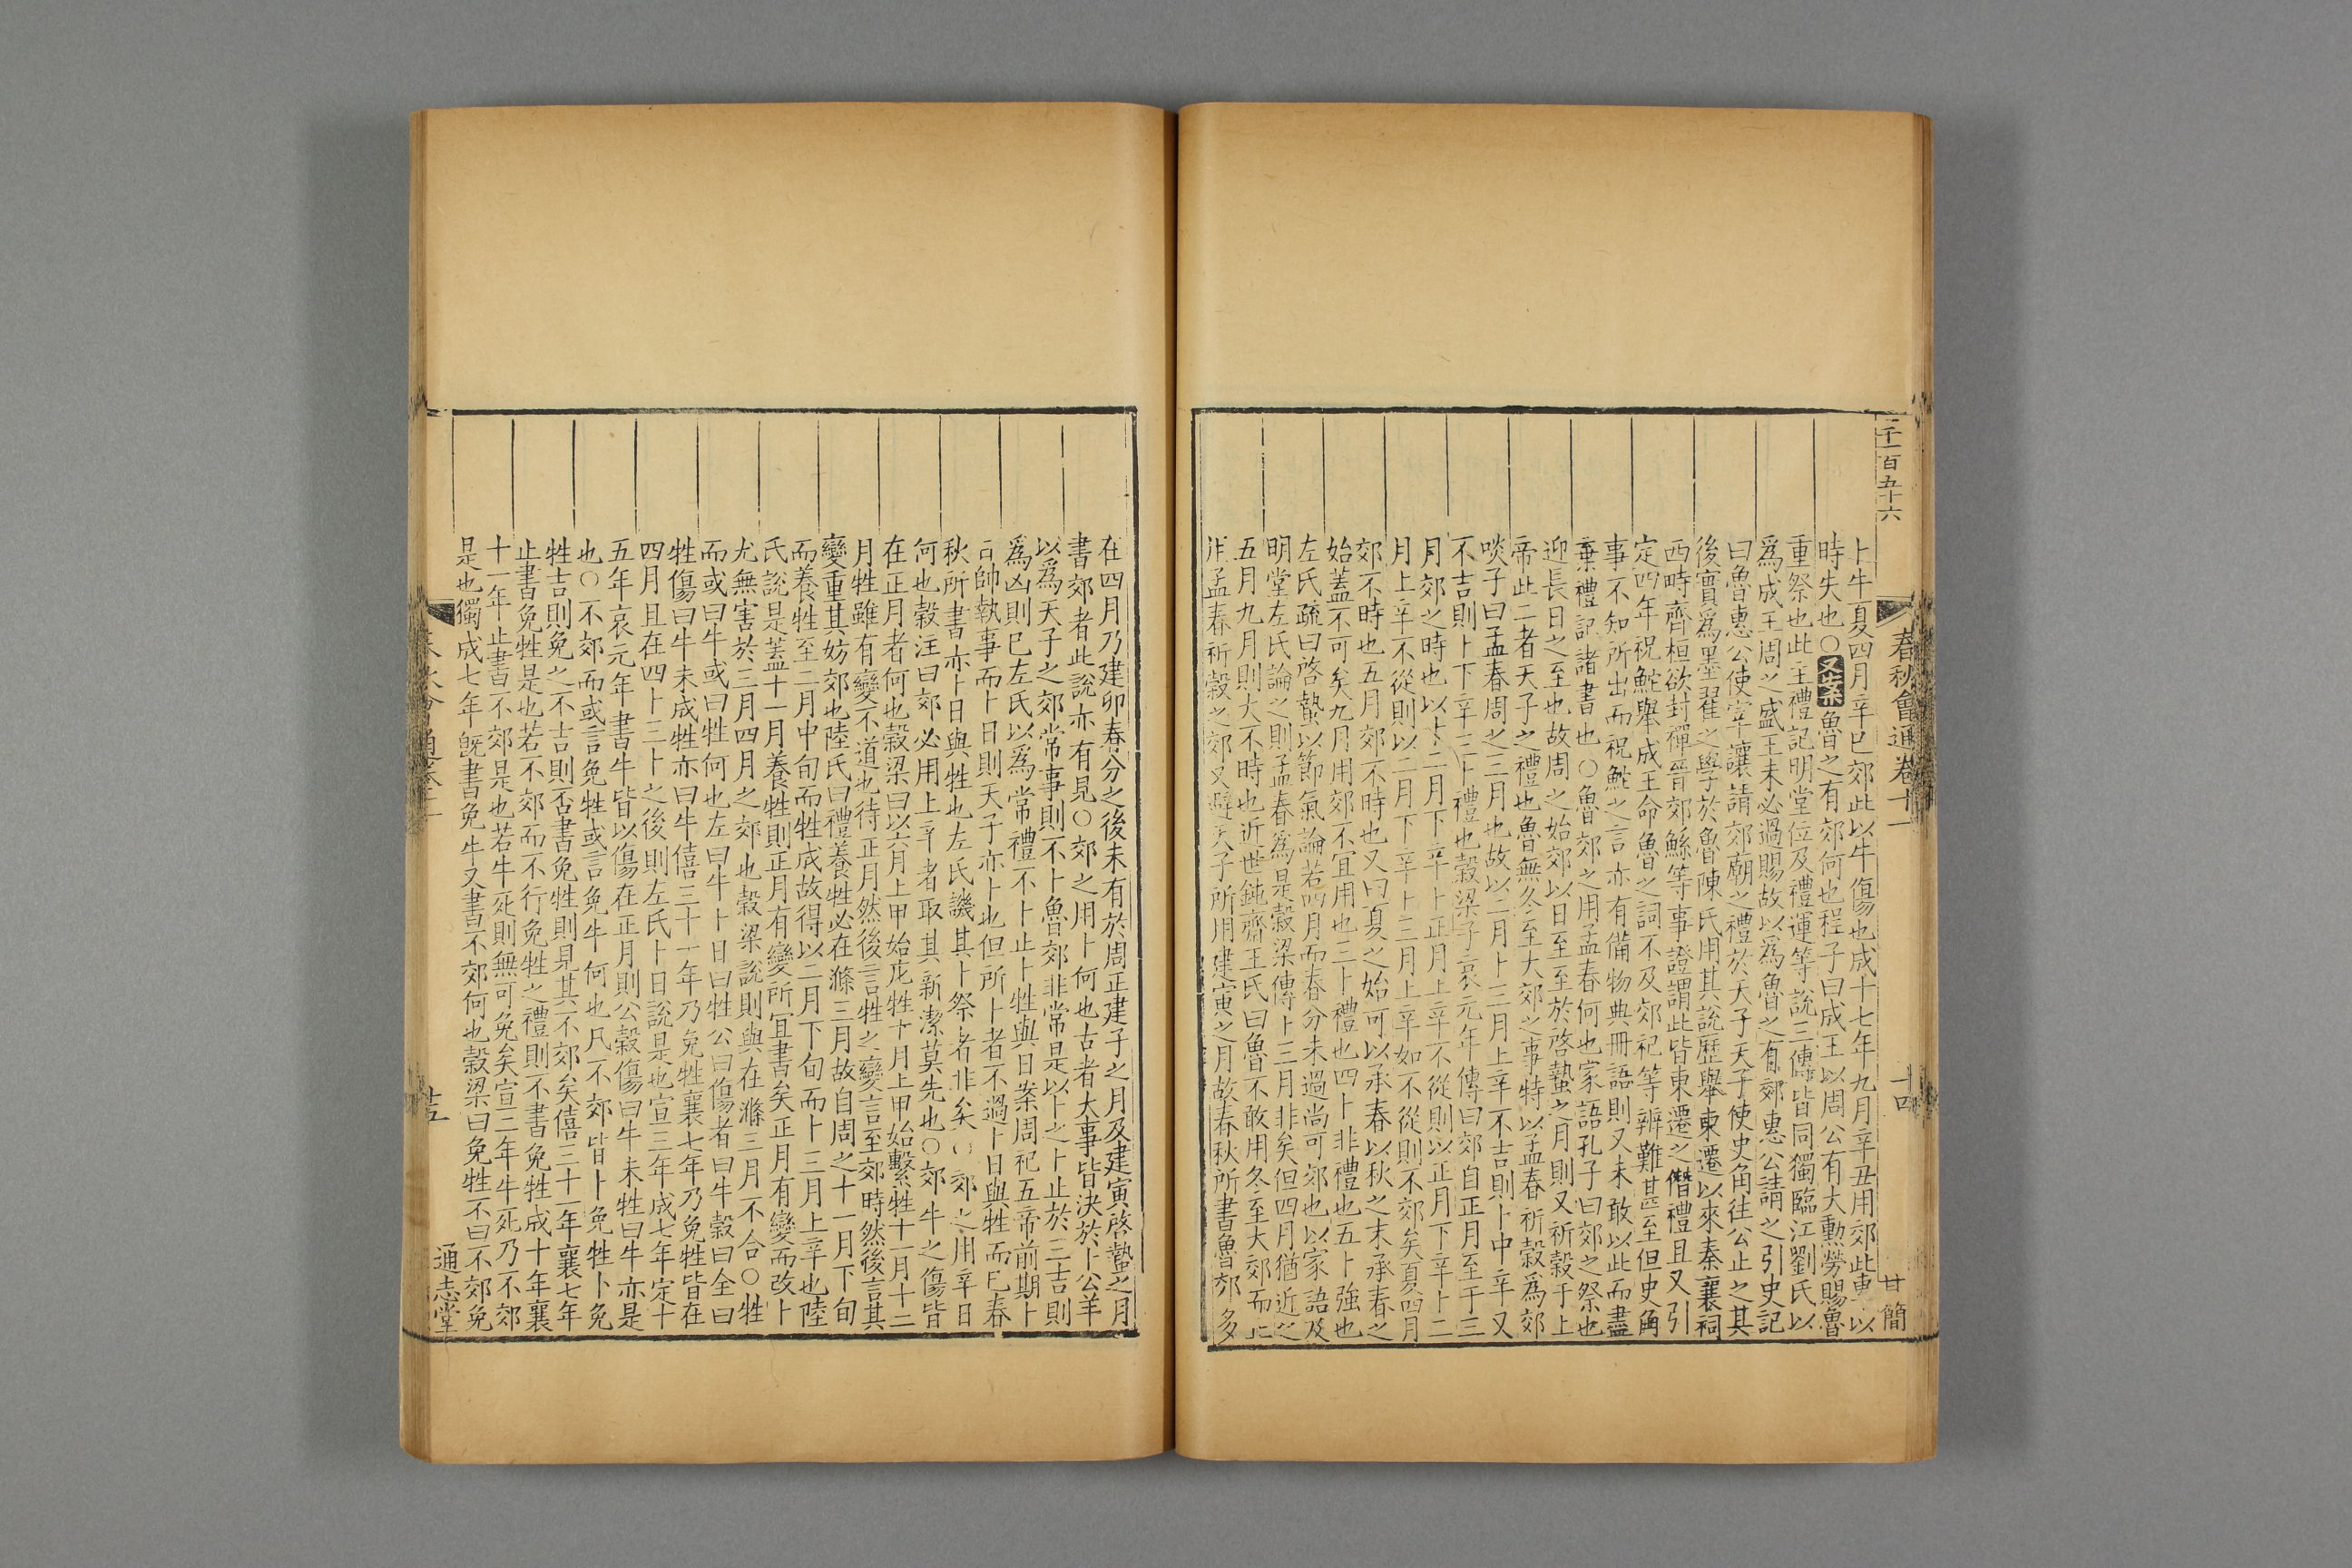 二千一百五十六
春秋會通卷十一
十四
甘簡
卜牛夏四月辛巳郊此以牛傷也成十七年九月辛丑用郊此以
時失也○又案魯之有郊何也程子曰成王以周公有大勲勞賜魯
重祭也此主禮記明堂位及禮運等說三傳皆同獨臨江劉氏以
爲成王周之盛王未必過賜故以爲魯之有郊惠公請之引史記
曰魯惠公使宰讓請郊廟之禮於天子天子使史角往公止之其
後實爲墨翟之學於魯陳氏用其說歷舉東遷以來秦襄祠
西畤齊桓欲封禪晉郊鯀等事證謂此皆東遷之僭禮且又引
定四年祝鮀舉成王命魯之詞不及郊祀等辨難甚至但史角
事不知所出而祝鮀之言亦有備物典冊語則又未敢以此而盡
棄禮記諸書也○魯郊之用孟春何也家語孔子曰郊之祭也
迎長日之至也故周之始郊以日至至於啓蟄之月則又祈穀于上
帝此二者天子之禮也魯無冬至大郊之事特以孟春祈穀爲郊
啖子曰孟春周之三月也故以二月卜三月上辛不吉則卜中辛又
不吉則卜下辛三卜禮也穀梁子哀元年傳曰郊自正月至于三
月郊之時也以十二月下辛卜正月上辛不從則以正月下辛卜二
月上辛不從則以二月下辛卜三月上辛如不從則不郊矣夏四月
郊不時也五月郊不時也又曰夏之始可以承春以秋之末承春之
始蓋不可矣九月用郊不宜用也三卜禮也四卜非禮也五卜強也
左氏疏曰啓蟄以節氣論若四月而春分未過尚可郊也以家語及
明堂左氏論之則孟春爲是穀梁傳卜三月非矣但四月猶近之
五月九月則大不時也近世鈍齋王氏曰魯不敢用冬至大郊而止
用孟春祈穀之郊又避天子所用建寅之月故春秋所書魯郊多
在四月乃建卯春分之後未有於周正建子之月及建寅啓蟄之月
書郊者此說亦有見○郊之用卜何也古者大事皆決於卜公羊
以爲天子之郊常事則不卜魯郊非常是以卜之卜止於三吉則
爲凶則已左氏以爲常禮不卜止卜牲與日案周祀五帝前期卜
日帥執事而卜日則天子亦卜也但所卜者不過卜日與牲而已春
秋所書亦卜日與牲也左氏譏其卜祭者非矣○郊之用辛日
何也穀注曰郊必用上辛者取其新潔莫先也○郊牛之傷皆
在正月者何也穀梁曰以六月上甲始庀牲十月上甲始繫牲十一月十二
月牲雖有變不道也待正月然後言牲之變言至郊時然後言其
變重其妨郊也陸氏曰禮養牲必在滌三月故自周之十一月下旬
而養牲至二月中旬而牲成故得以二月下旬而卜三月上辛也陸
氏說是蓋十一月養牲則正月有變所宜書矣正月有變而改卜
尤無害於三月四月之郊也穀梁說則與在滌三月不合○牲
而或曰牛或曰牲何也左曰牛卜日曰牲公曰傷者曰牛穀曰全曰
牲傷曰牛未成牲亦曰牛僖三十一年乃免牲襄七年乃免牲皆在
四月且在四卜三卜之後則左氏卜日說是也宣三年成七年定十
五年哀元年書牛皆以傷在正月則公穀傷曰牛未牲曰牛亦是
也○不郊而或言免牲或言免牛何也凡不郊皆卜免牲卜免
牲吉則免之不吉則否書免牲則見其不郊矣僖三十一年襄七年
止書免牲是也若不郊而不行免牲之禮則不書免牲成十年襄
十一年止書不郊是也若牛死則無可免矣宣三年牛死乃不郊
是也獨成七年旣書免牛又書不郊何也穀梁曰免牲不曰不郊免
十五
通志堂